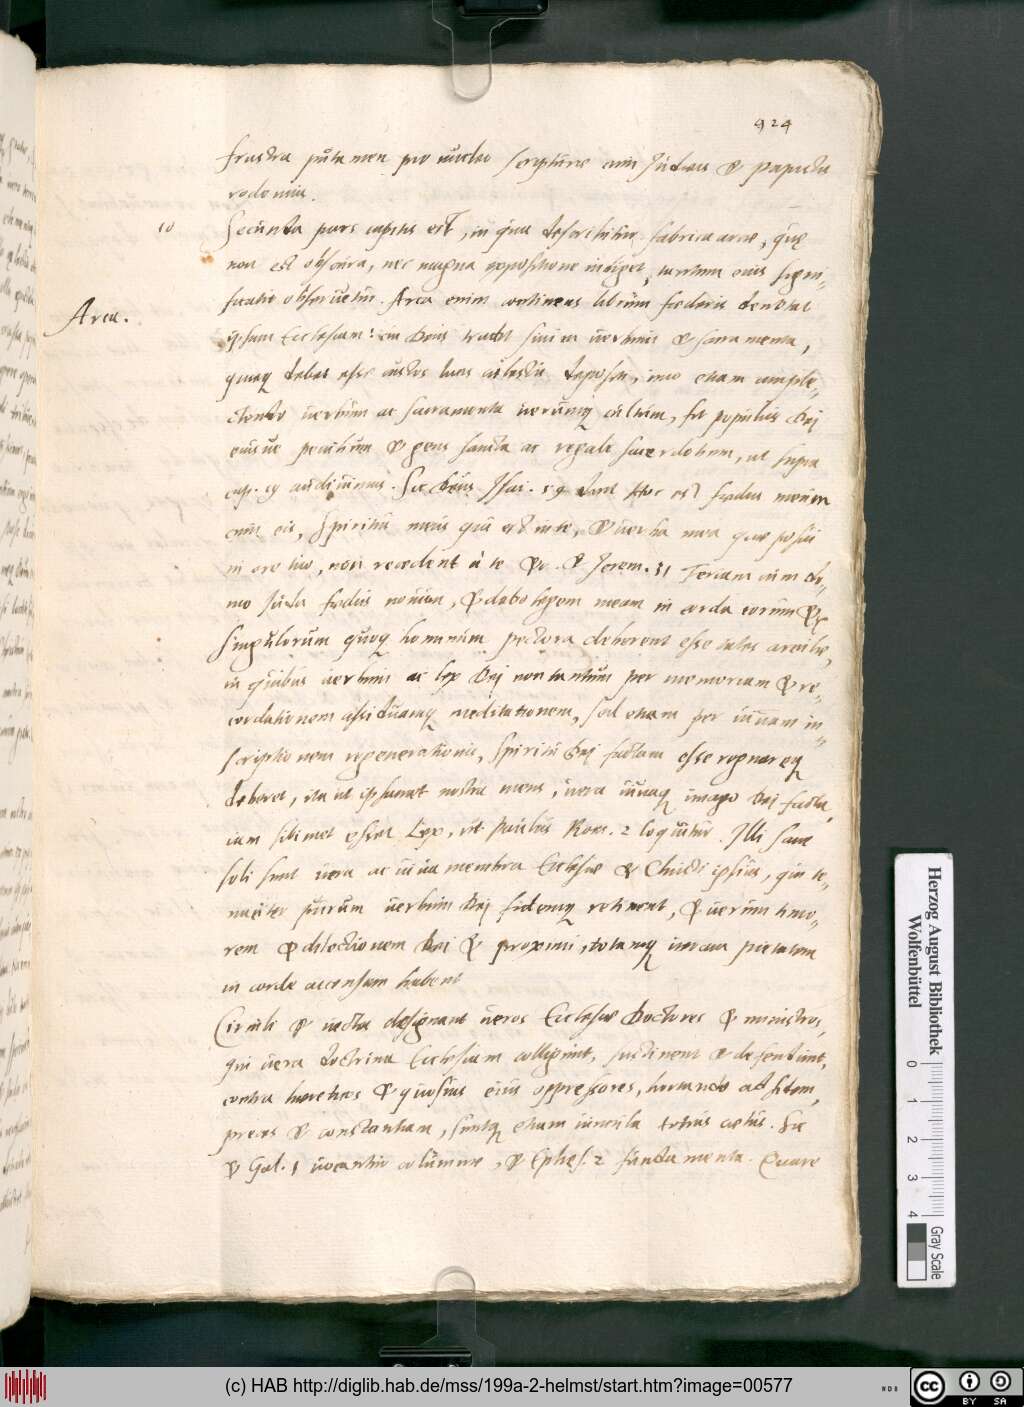 924
frustra putamen pro nucleo scripturae cum Judaeis & papistis
rodemus.
10
Secunda pars capitis est, in qua describitur fabrica arcae, quae
non est obscura, nec magna expositione indiget, tantum eius signi-
ficatio observetur. Arca enim continens librum foederis denotat
Arca.
ipsam Ecclesiam: cui Deus tradit suum verbum & sacramenta,
quaeq debet esse custos huius coelestis depositi, imo etiam comple-
ctendo verbum ac sacramenta verumq cultum, fit populus Dei
eiusve peculium & gens sancta ac regale sacerdotium, ut supra
cap. 19 audivimus. Sic Deus Isai. 59 dicit Hoc est foedus meum
cum eis, Spiritus meus qui est in te, & verba mea quae posui
in ore tuo, non recedent à te &c. & Jerem. 31 Feriam cum do-
mo Juda foedus novum, & dabo legem meam in corda eorum &c
Singulorum quoq hominum pectora deberent esse tales arculae,
in quibus verbum ac lex Dei non tantum per memoriam & re-
cordationem assiduamq meditationem, sed etiam per vivam in-
scriptionem regenerationis, Spiritu Dei factam esse regnareq
deberet, ita ut ipsamet nostra mens, vera vivaq imago Dei facta,
iam sibimet esset Lex, ut Paulus Rom. 2 loquitur. Illi sane
soli sunt vera ac viva membra Ecclesiae & Christi ipsius, qui te-
naciter purum verbum Dei fidemq retinent, & verum timo-
rem & dilectionem Dei & proximi, totamq pietatem
in corde accensam habent
Circuli & vectes designant veros Ecclesiae Doctores & ministros,
qui vera doctrina Ecclesiam colligunt, sustinent & defendunt,
contra haereticos & quosvis eius oppressores, hortando ad fidem,
preces & constantiam, suntq etiam vincula totius coetus. Sic
& Gal. vocantur columnae, & Ephes. 2 fundamenta. Quare
Herzog August Bibliothek
Wolfenbüttel
0 1 2 3 4
Gray Scale
(c) HAB http://diglib.hab.de/mss/199a-2-helmst/start.htm?image=00577
cc BY SA